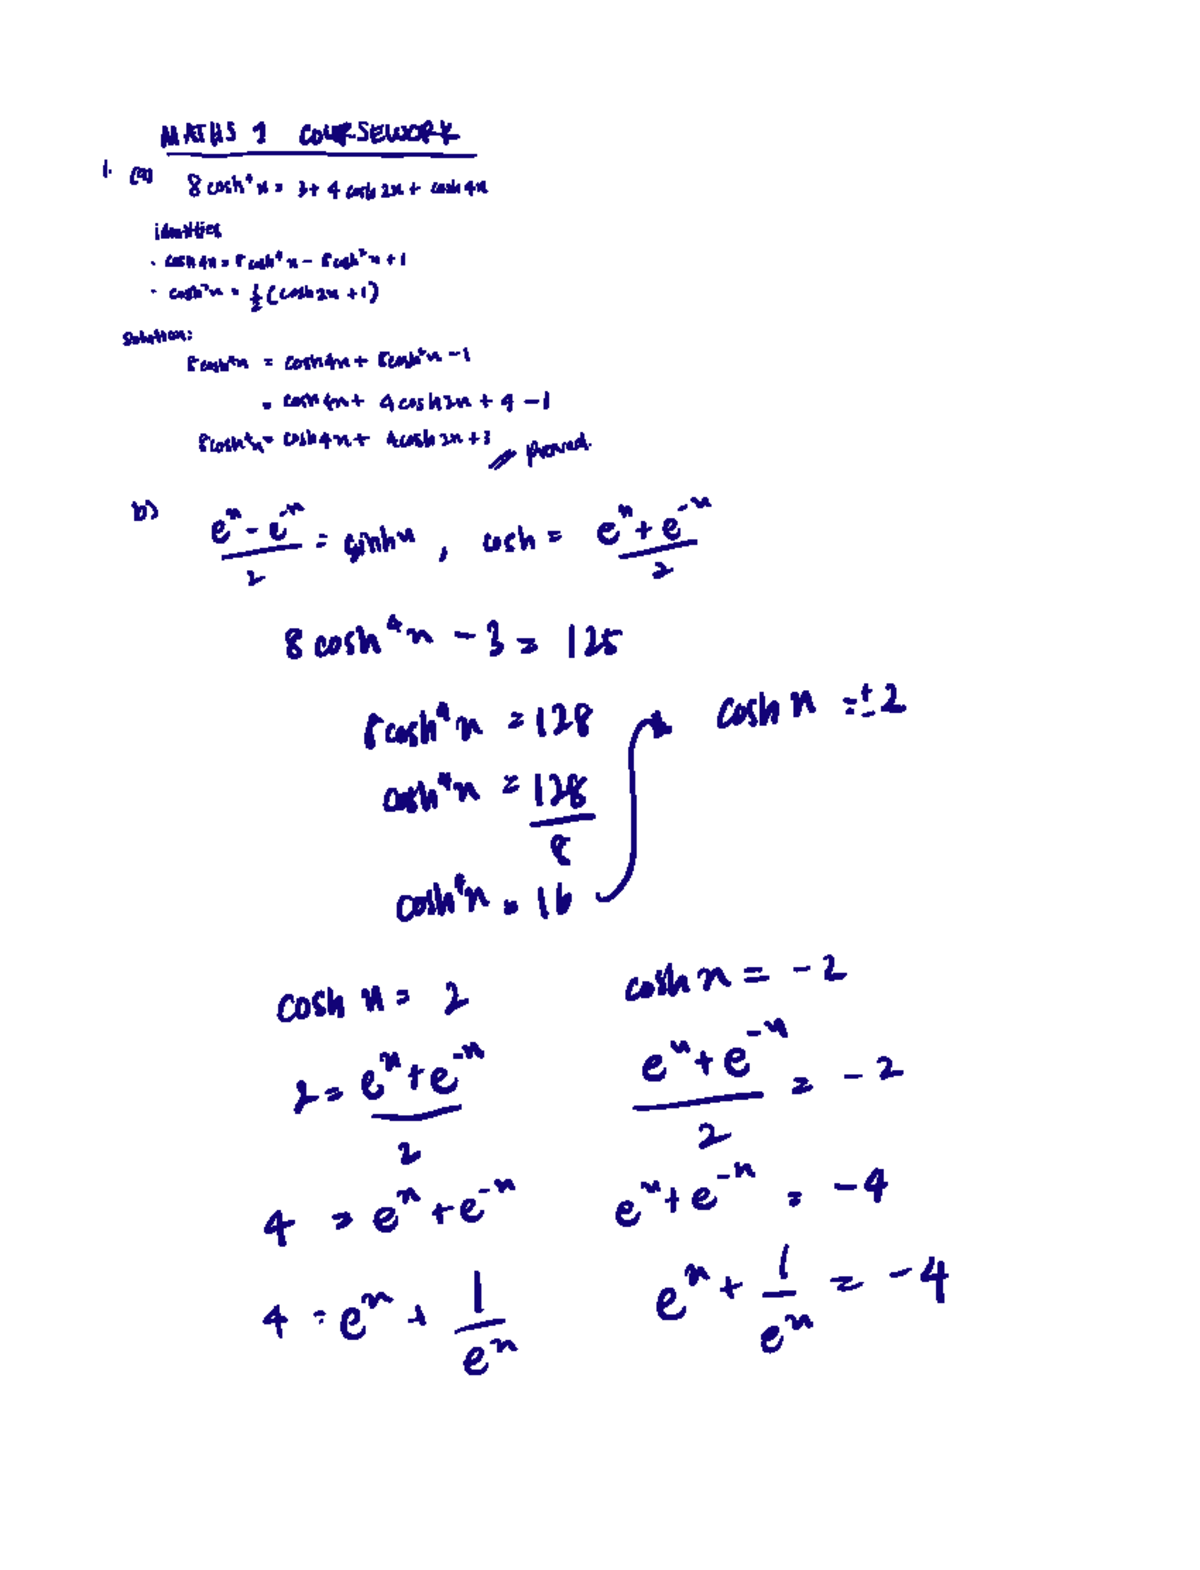 MATHS 1 COURSEWORK
1. (a) 8 cosh⁴x = 3 + 4 cosh 2x + cosh 4x
identities
· cosh 4x = 8 cosh⁴x - 8 cosh²x + 1
· cosh²x = 1/2 (cosh 2x + 1)
Solution:
8 cosh⁴x = cosh 4x + 8 cosh²x - 1
= cosh 4x + 4 cosh 2x + 4 - 1
8 cosh⁴x = cosh 4x + 4 cosh 2x + 3 // proved.
b) (eˣ - e⁻ˣ)/2 = sinh x , cosh = (eˣ + e⁻ˣ)/2
8 cosh⁴x - 3 = 125
8 cosh⁴x = 128
cosh⁴x = 128/8
cosh⁴x = 16
cosh x = ±2
cosh x = 2
2 = (eˣ + e⁻ˣ)/2
4 = eˣ + e⁻ˣ
4 = eˣ + 1/eˣ
cosh x = -2
(eˣ + e⁻ˣ)/2 = -2
eˣ + e⁻ˣ = -4
eˣ + 1/eˣ = -4